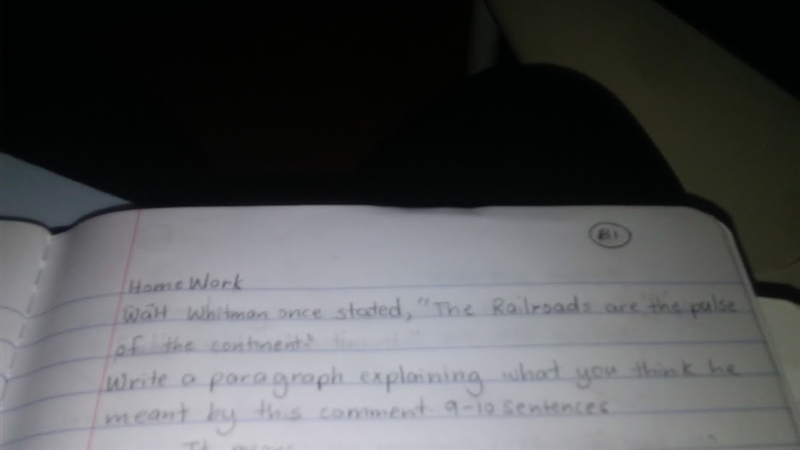 B1
HomeWork
Walt Whitman once stated, "The Railroads are the pulse
of the continent."
Write a paragraph explaining what you think he
meant by this comment 9-10 sentences
It means